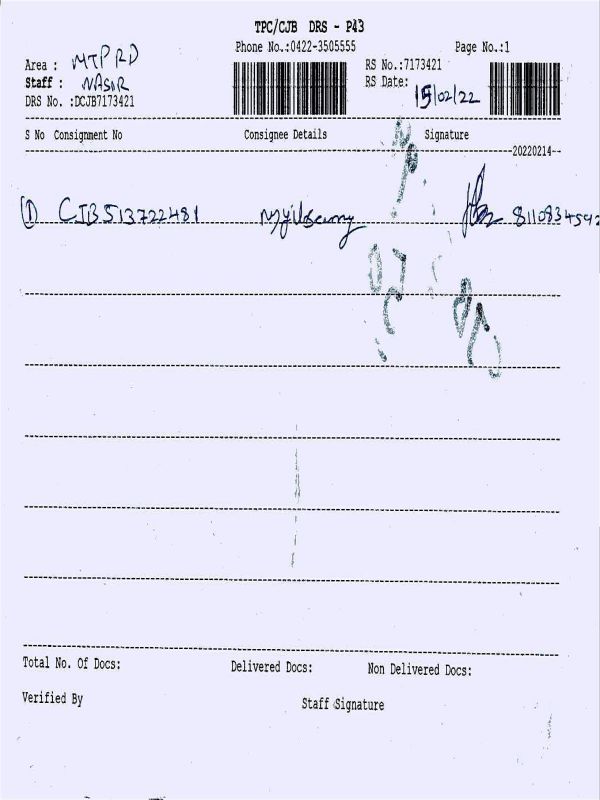 TPC/CJB DRS - P43
Phone No.:0422-3505555 Page No.:1
Area : MTP RD RS No.:7173421
Staff : NASAR RS Date: 15/02/22
DRS No. :DCJB7173421
S No Consignment No Consignee Details Signature
20220214
1 CJB513722481 Myilsamy 8110834592
Total No. Of Docs: Delivered Docs: Non Delivered Docs:
Verified By Staff Signature